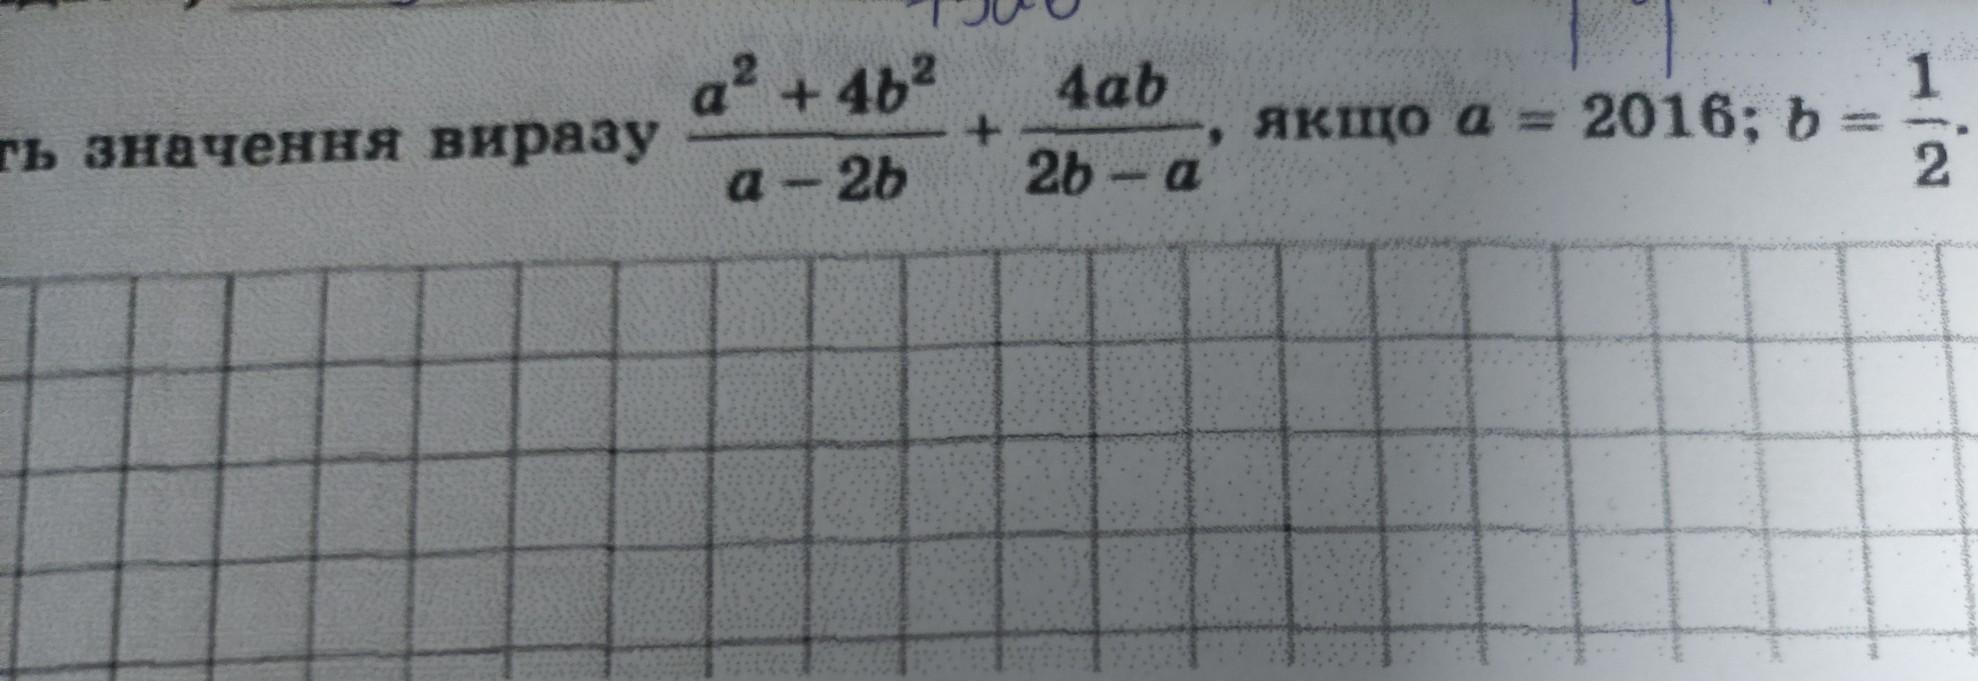 ть значення виразу \frac{a^2 + 4b^2}{a - 2b} + \frac{4ab}{2b - a}, якщо a = 2016; b = \frac{1}{2}.